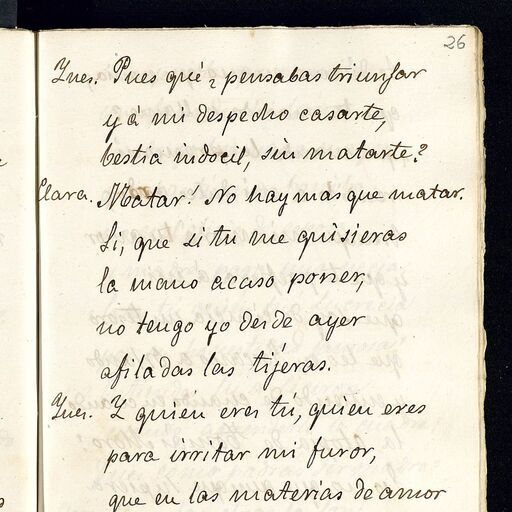 26
Ynes. Pues qué ¿pensabas triunfar
y á mi despecho casarte,
bestia indocil, sin matarte?
Clara. Matar! No hay mas que matar.
Si, que si tu me quisieras
la mano acaso poner,
no tengo yo desde ayer
afiladas las tijeras.
Ynes. Y quien eres tu, quien eres
para irritar mi furor,
que en las materias de amor